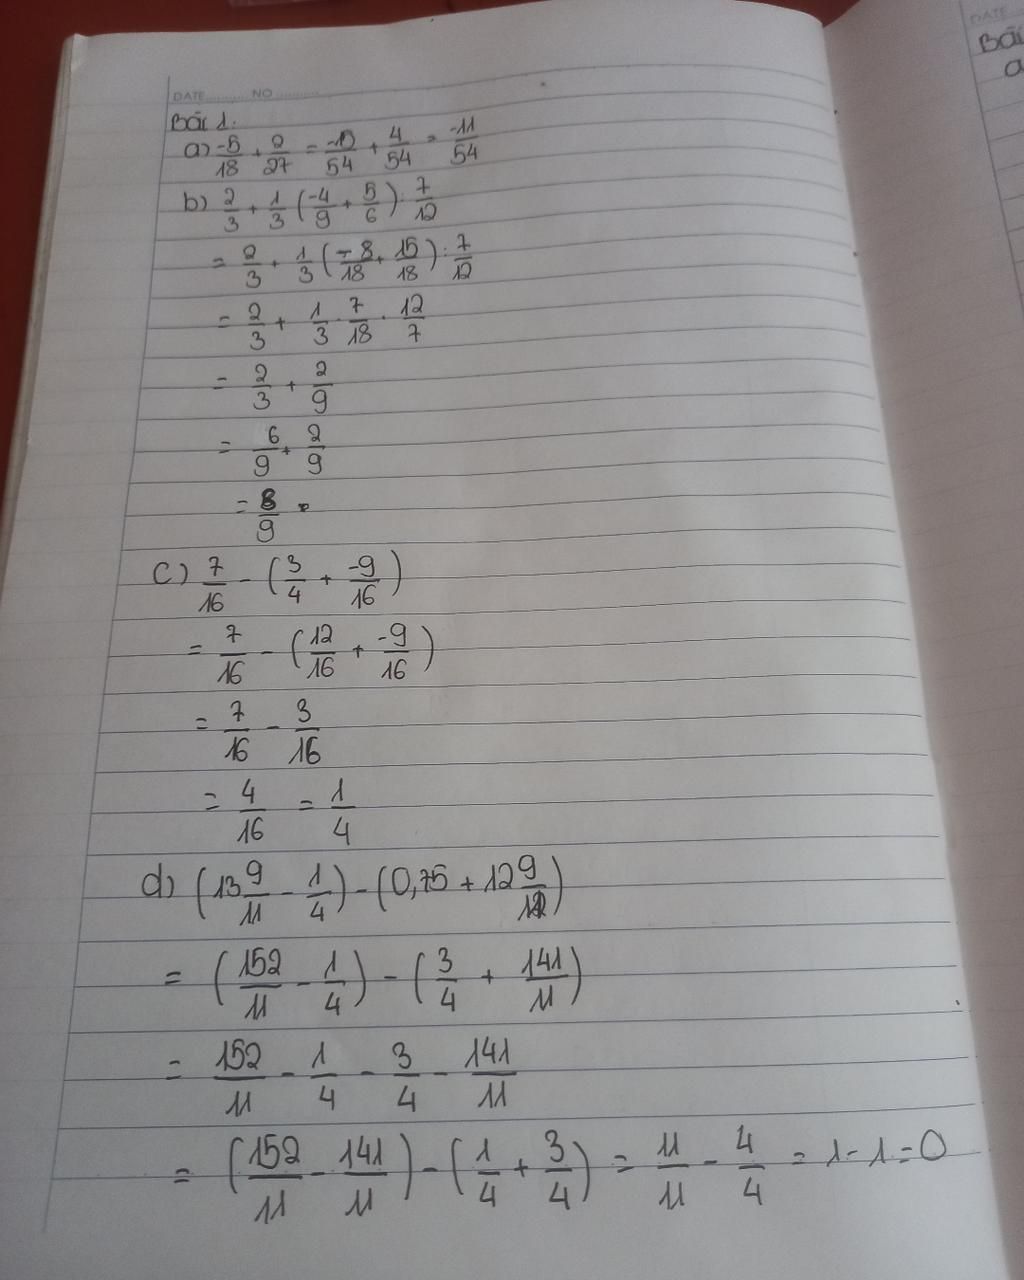 DATE.......... NO ..............
Bài 1:
a) -5/18 + 2/27 = -15/54 + 4/54 = -11/54
b) 2/3 + 1/3 (-4/9 + 5/6) : 7/12
= 2/3 + 1/3 (-8/18 + 15/18) : 7/12
= 2/3 + 1/3 . 7/18 . 12/7
= 2/3 + 2/9
= 6/9 + 2/9
= 8/9 .
c) 7/16 - (3/4 + -9/16)
= 7/16 - (12/16 + -9/16)
= 7/16 - 3/16
= 4/16 = 1/4
d) (13 9/11 - 1/4) - (0,75 + 12 9/11)
= (152/11 - 1/4) - (3/4 + 141/11)
= 152/11 - 1/4 - 3/4 - 141/11
= (152/11 - 141/11) - (1/4 + 3/4) = 11/11 - 4/4 = 1 - 1 = 0
DATE
Bài
a